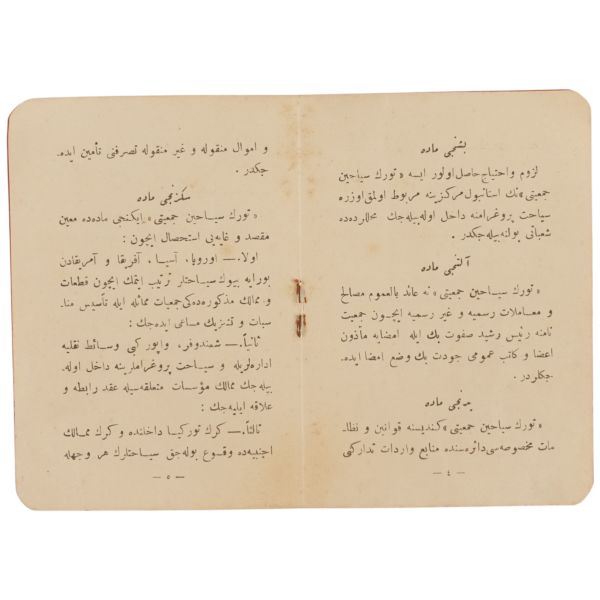 بشنجی ماده
لزوم و احتیاج حاصل اولور ایسه «تورك سیاحین
جمعیتی» نك استانبول مرکزینه مربوط اولمق اوزره
سیاحت پروغرامنه داخل اوله‌بیله‌جك محللرده‌ده
شعباتی بولنه‌بیله‌جکدر.
آلتنجی ماده
«تورك سیاحین جمعیتی» نه عائد بالعموم مصالح
و معاملات رسمیه و غیر رسمیه ایچون جمعیت
نامنه رئیس رشید صفوت بك ایله امضایه مأذون
اعضا و کاتب عمومی جودت بك وضع امضا ایده.
جکلردر.
یدنجی ماده
«تورك سیاحین جمعیتی» کندیسنه قوانین و نظا۔
مات مخصوصه‌سی دائره‌سنده منابع واردات تدارکی
— ٤ —
و اموال منقوله و غیر منقوله تصرفنی تأمین ایده.
جکدر.
سکزنجی ماده
«تورك سیاحین جمعیتی» ایکنجی ماده‌ده معین
مقصد و غایه‌یی استحصال ایچون :
اولا. — اوروپا، آسیا، آفریقا و آمریقادن
بورایه بیوك سیاحتلر ترتیب ایتمك ایچون قطعات
و ممالك مذکوره‌ده‌کی جمعیات مماثله ایله تأسیس منا۔
سبات و تشریك مساعی ایده‌جك :
ثانیاً. — شمندوفر، واپور کبی وسائط نقلیه
اداره‌لریله و سیاحت پروغراملرینه داخل اوله.
بیله‌جك ممالك مؤسسات متعلقه‌سیله عقد رابطه و
علاقه ایلیه‌جك :
ثالثاً. — کرك تورکیا داخلنده و کرك ممالك
اجنبیه‌ده وقوع بوله‌جق سیاحتلرك هر وجهله
— ٥ —